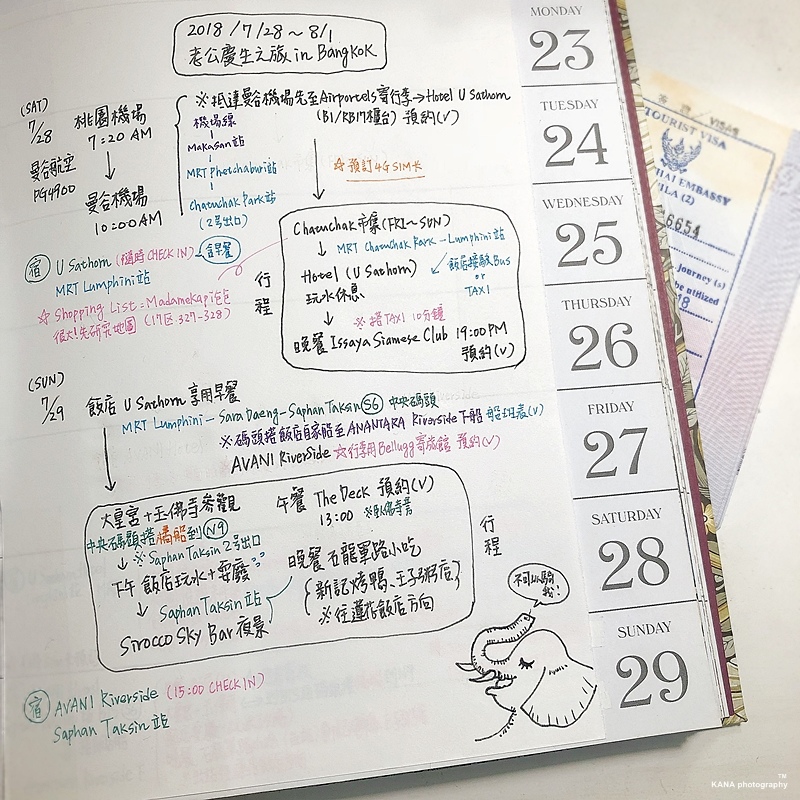 2018/7/28～8/1
老公慶生之旅 in BangKoK
(SAT)
7/28
桃園機場
7:20 AM
↓
曼谷機場
10:00AM
曼谷航空
PG4900
※抵達曼谷機場先至Airportels寄行李→Hotel U Sathorn
(B1/RB17櫃台) 預約(V)
機場線
Makasan站
MRT Phetchaburi站
Chatuchak Park站
(2号出口)
☆預訂4G SIM卡
宿 U Sathorn (隨時CHECK IN) 含早餐
MRT Lumphini站
☆Shopping List:Madamekapi包包
很大!先研究地圖 (17区 327-328)
行程
Chatuchak市集(FRI～SUN)
↓ MRT Chatuchak Park - Lumphini站
Hotel (U Sathorn)
玩水休息
飯店接駁Bus
or
TAXI
↓ ※搭TAXI 10分鐘
晚餐 Issaya Siamese Club 19:00PM
預約(V)
(SUN)
7/29
飯店 U Sathorn 享用早餐
MRT Lumphini - Sara Daeng - Saphan Taksin S6 中央碼頭
※碼頭搭飯店自家船至ANANTARA Riverside下船 船班表(V)
AVANI RiverSide ☆行李用Bellugg寄旅館 預約(V)
大皇宮+玉佛寺參觀
中央碼頭搭橘船到N9
↓ ※Saphan Taksin 2号出口
下午 飯店玩水+耍廢
↓ Saphan Taksin站
Sirocco Sky Bar 夜景
午餐 The Deck 預約(V)
13:00 ※臥佛寺旁
晚餐 石龍軍路小吃
新記烤鴨、王子粥店
※往蓮花飯店方向
行程
不可以騎我!
宿 AVANI Riverside (15:00 CHECK IN)
Saphan Taksin站
MONDAY
23
TUESDAY
24
WEDNESDAY
25
THURSDAY
26
FRIDAY
27
SATURDAY
28
SUNDAY
29
TOURIST VISA
THAI EMBASSY
6654
Journey (s)
be utilized
KANA photography™